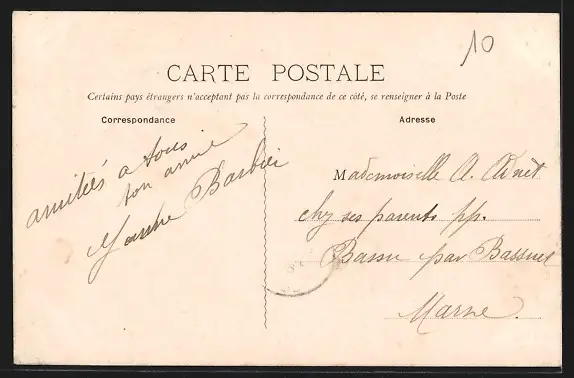 10
CARTE POSTALE
Certains pays étrangers n'acceptant pas la correspondance de ce côté, se renseigner à la Poste
Correspondance
Adresse
amitiés a tous
ton amie
Barbier
Mademoiselle A. Adnet
chez ses parents pp.
Bassu par Bassuet
Marne.